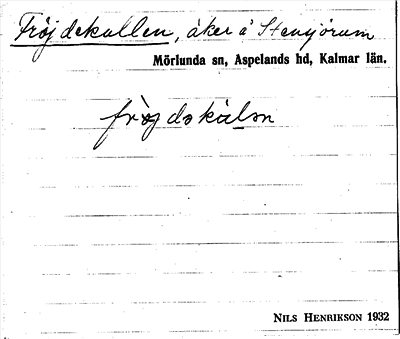 Fröjdekullen, åker å Stensjörum
Mörlunda sn, Aspelands hd, Kalmar län.
frö̀jdəkùlən
NILS HENRIKSON 1932